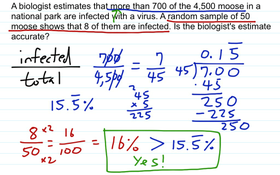 A biologist estimates that more than 700 of the 4,500 moose in a
national park are infected with a virus. A random sample of 50
moose shows that 8 of them are infected. Is the biologist's estimate
accurate?
infected/total 700/4,500 = 7/45
45)7.00 0.15
-45
250
-225
250
2
45
× 5
225
15.5%
8/50 ×2 ×2 = 16/100 = 16% > 15.5%
Yes!